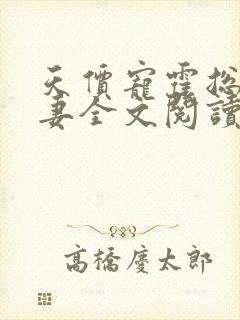 天價寵霆總
妻全文閱讀
高橋慶太郎